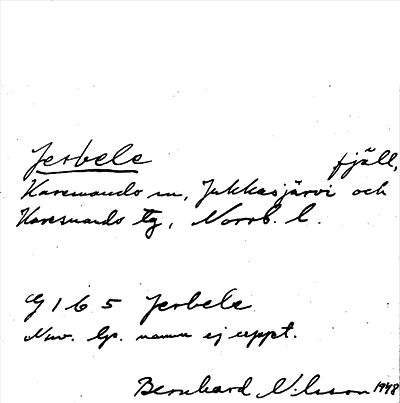 Jerbele fjäll,
Karesuando sn, Jukkasjärvi och
Karesuando tg, Norrb. l.
G 165 Jerbele
Nuv. lp. namn ej uppt.
Bernhard Nilsson 1948